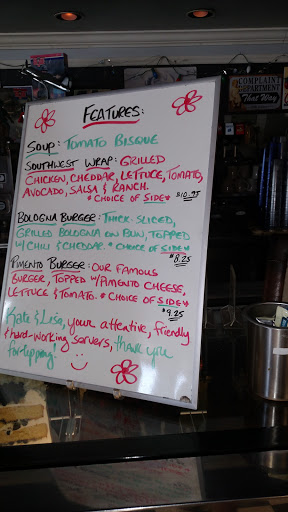 COMPLAINT
DEPARTMENT
That Way
FEATURES:
SOUP: TOMATO BISQUE
SOUTHWEST WRAP: GRILLED
CHICKEN, CHEDDAR, LETTUCE, TOMATO,
AVOCADO, SALSA & RANCH.
* CHOICE OF SIDE* $10.95
BOLOGNA BURGER: THICK SLICED,
GRILLED BOLOGNA ON BUN, TOPPED
W/CHILI & CHEDDAR. * CHOICE OF SIDE*
$8.25
PIMENTO BURGER: OUR FAMOUS
BURGER, TOPPED W/PIMENTO CHEESE,
LETTUCE & TOMATO. * CHOICE OF SIDE*
$9.25
Kate & Lisa, your attentive, friendly
& hard-working servers, thank you
for tipping!